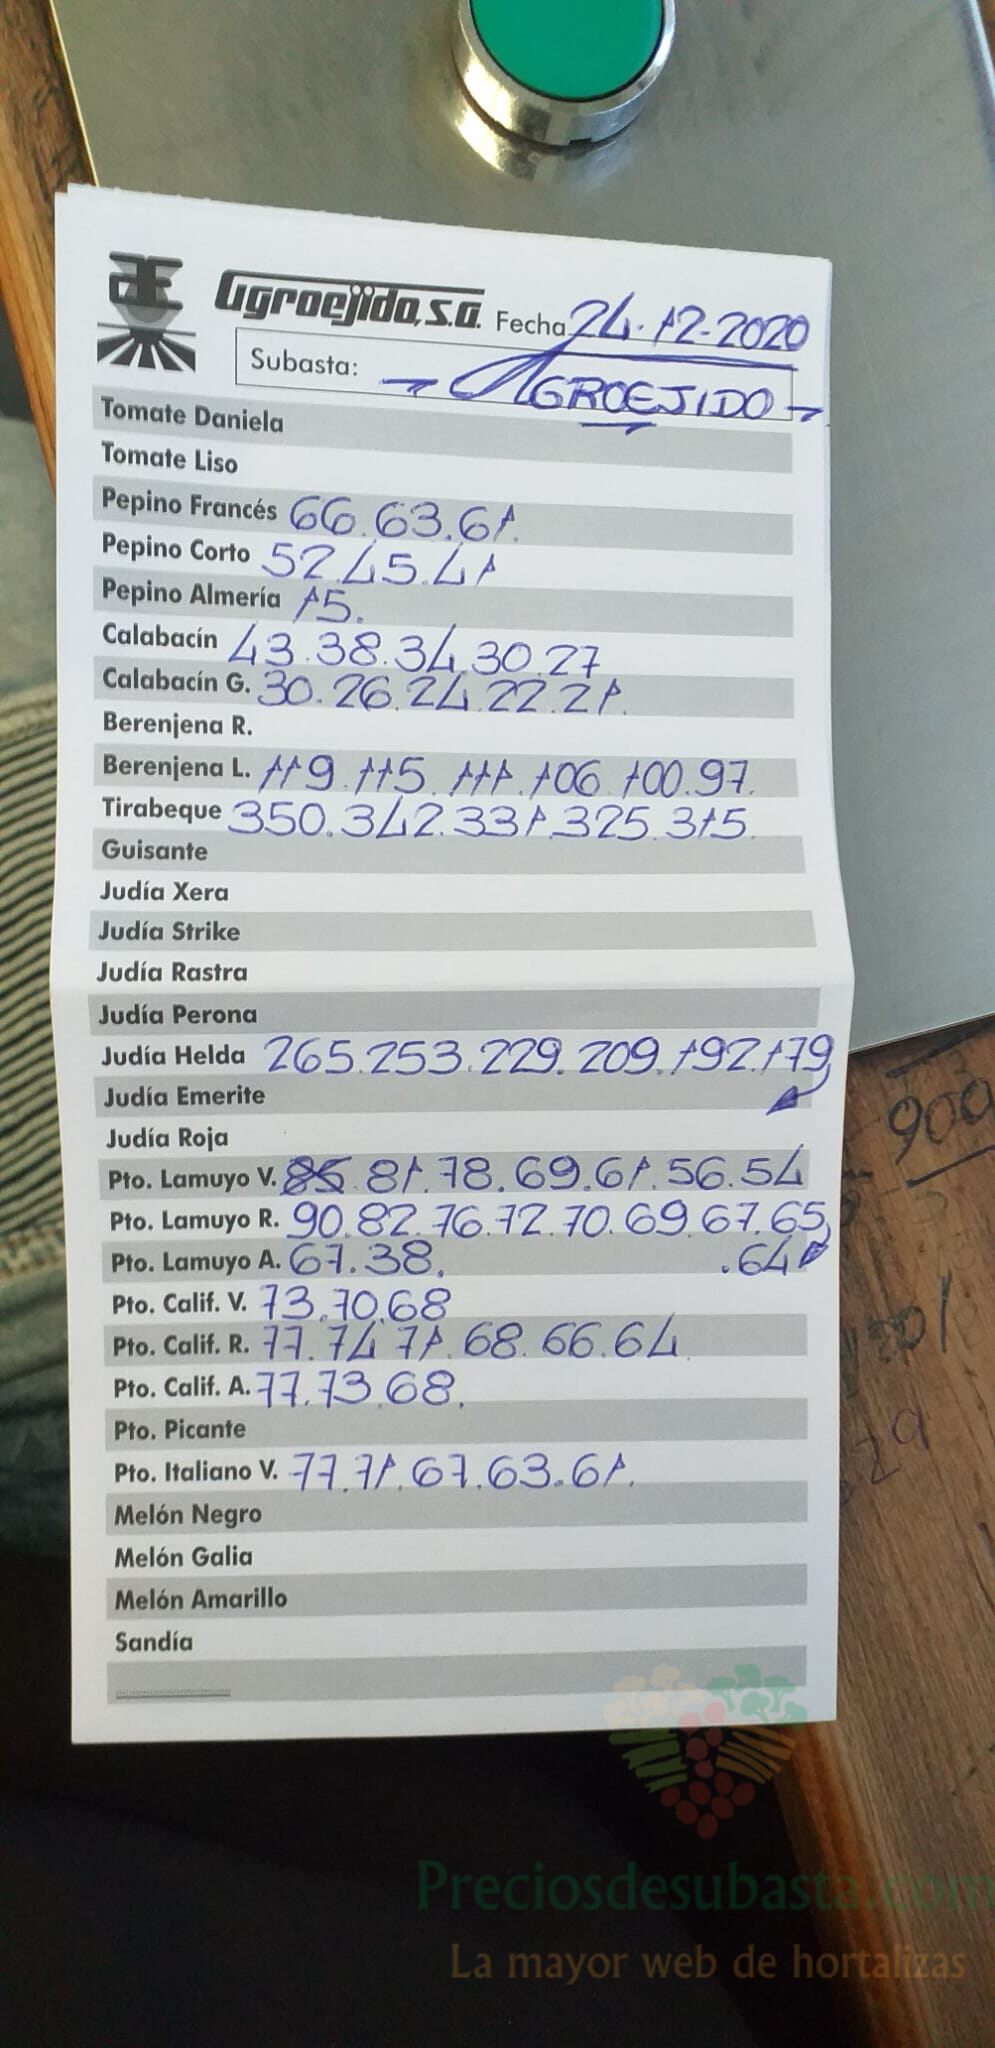 Agroejido, S.A. Fecha 24.12-2020
Subasta: AGROEJIDO
Tomate Daniela
Tomate Liso
Pepino Francés 66.63.61.
Pepino Corto 52.45.41
Pepino Almería 15.
Calabacín 43.38.34.30.27
Calabacín G. 30.26.24.22.21.
Berenjena R.
Berenjena L. 119.115.111.106.100.97.
Tirabeque 350.342.331.325.315.
Guisante
Judía Xera
Judía Strike
Judía Rastra
Judía Perona
Judía Helda 265.253.229.209.192.179
Judía Emerite
Judía Roja
Pto. Lamuyo V. 81.78.69.61.56.54
Pto. Lamuyo R. 90.82.76.72.70.69.67.65
Pto. Lamuyo A. 67.38. .64
Pto. Calif. V. 73.70.68
Pto. Calif. R. 77.74.71.68.66.64
Pto. Calif. A. 77.73.68.
Pto. Picante
Pto. Italiano V. 77.71.67.63.61.
Melón Negro
Melón Galia
Melón Amarillo
Sandía
Preciosdesubasta.com
La mayor web de hortalizas